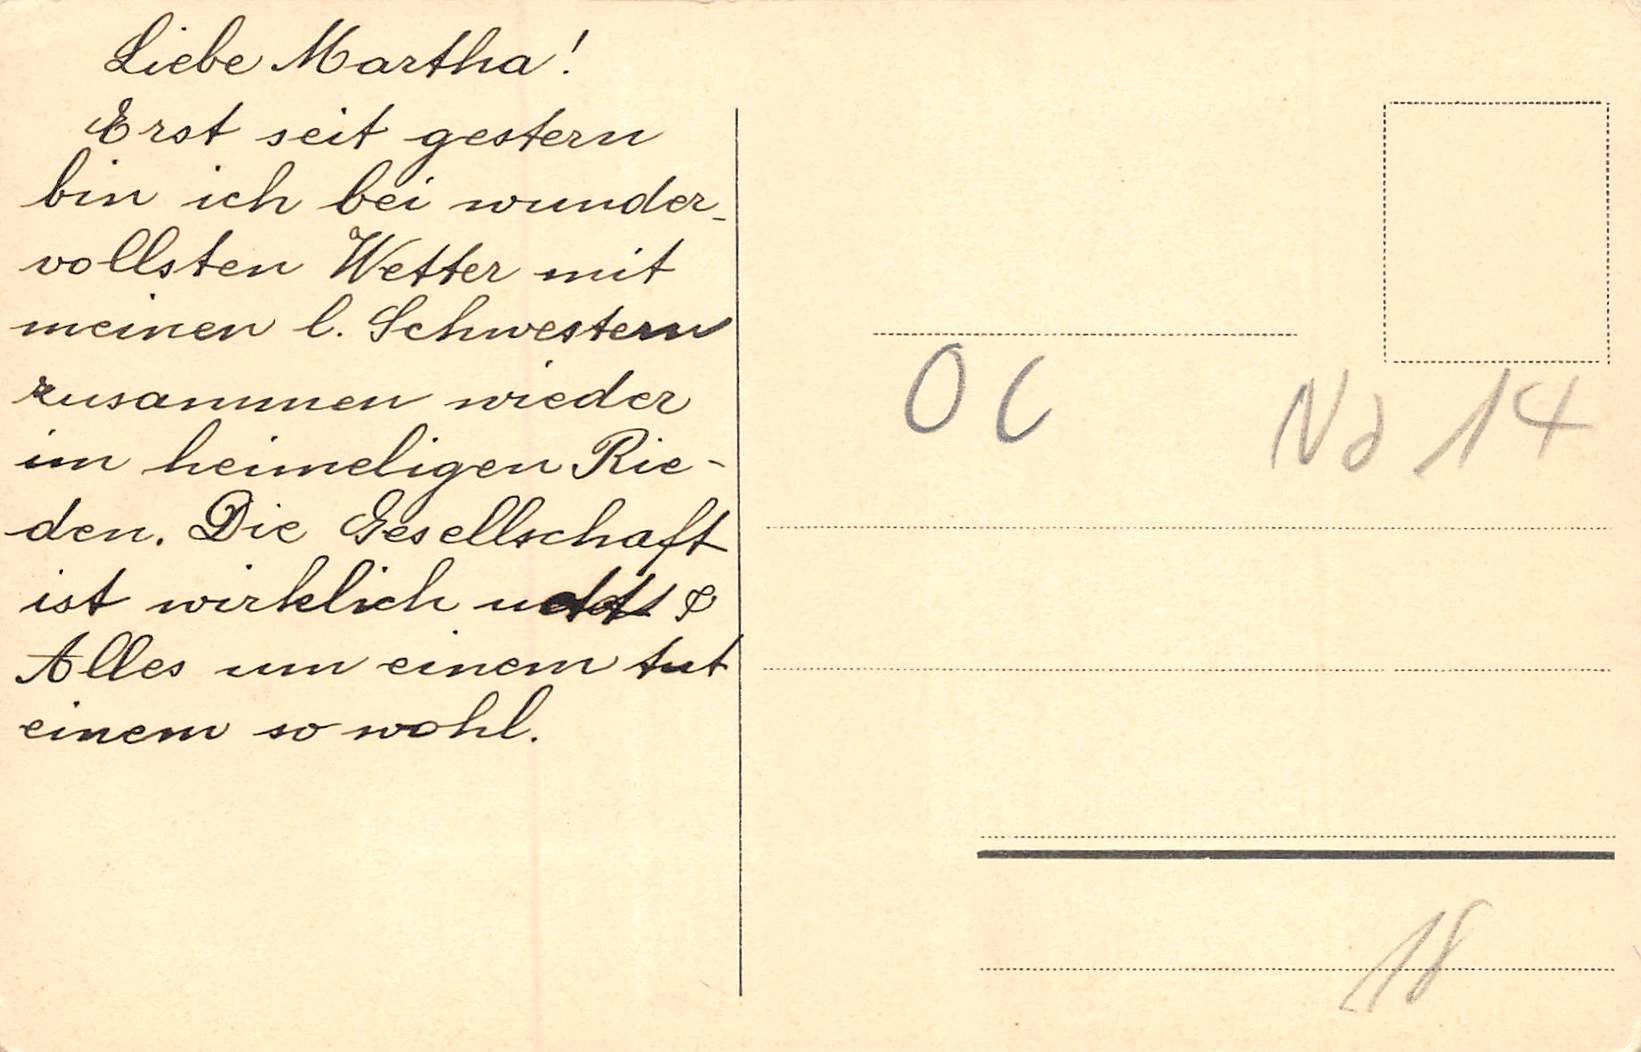 Liebe Martha!
Erst seit gestern
bin ich bei wunder-
vollsten Wetter mit
meinen l. Schwestern
zusammen wieder
im heimeligen Rie-
den. Die Gesellschaft
ist wirklich &
Alles um einem tut
einem so wohl.
OC
No 14
18